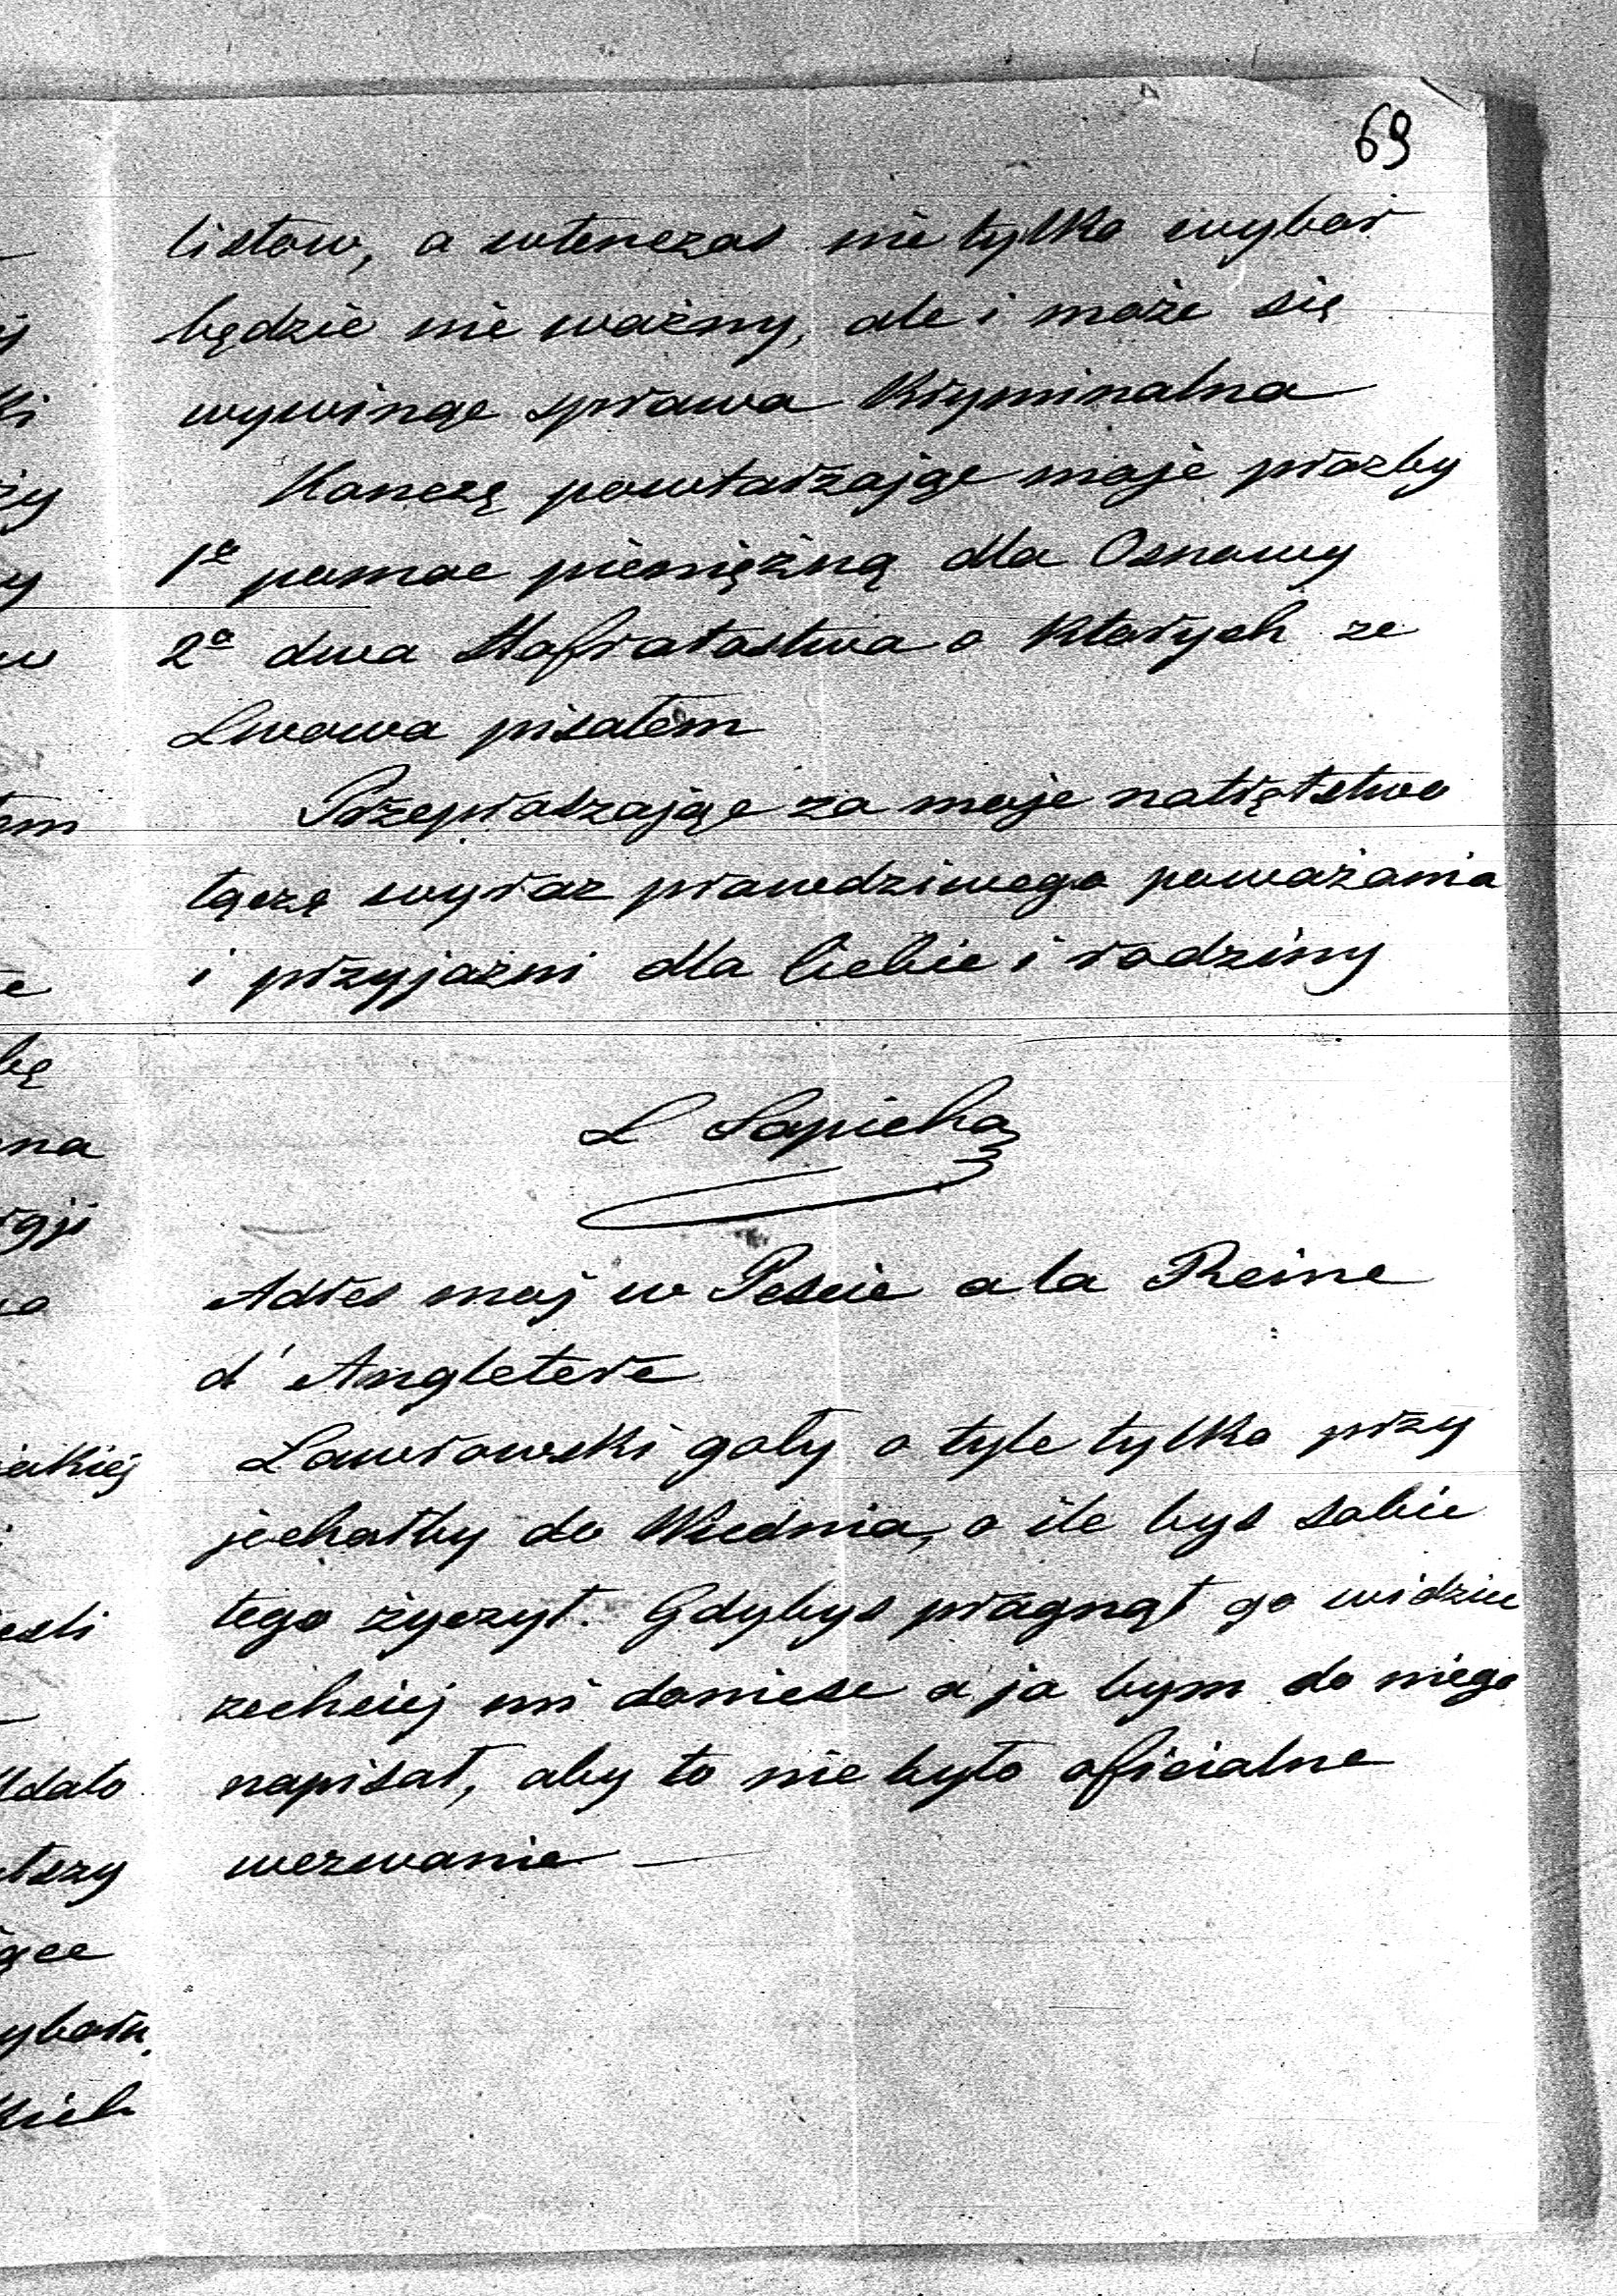 69
listow, a wtenczas nie tylko wybor
będzie nie ważny, ale i może się
wywinąc sprawa Kryminalna
Konczę powtarzając moje prozby
1o pomoc pieniężną dla Osnowy
2o dwa Hofratostwa o Ktorych ze
Lwowa pisałem
Przepraszając za moje natrętstwo
łączę wyraz prawdziwego poważania
i przyjazni dla Ciebie i rodziny
L Sapieha
Adres moj w Pescie a la Reine
d'Angletere
Lawrowski goły o tyle tylko przy
jechałby do Wiednia, o ile bys sobie
tego życzył. Gdybys pragnął go widziec
zechciej mi doniesc a ja bym do niego
napisał, aby to nie było oficialne
wezwanie —